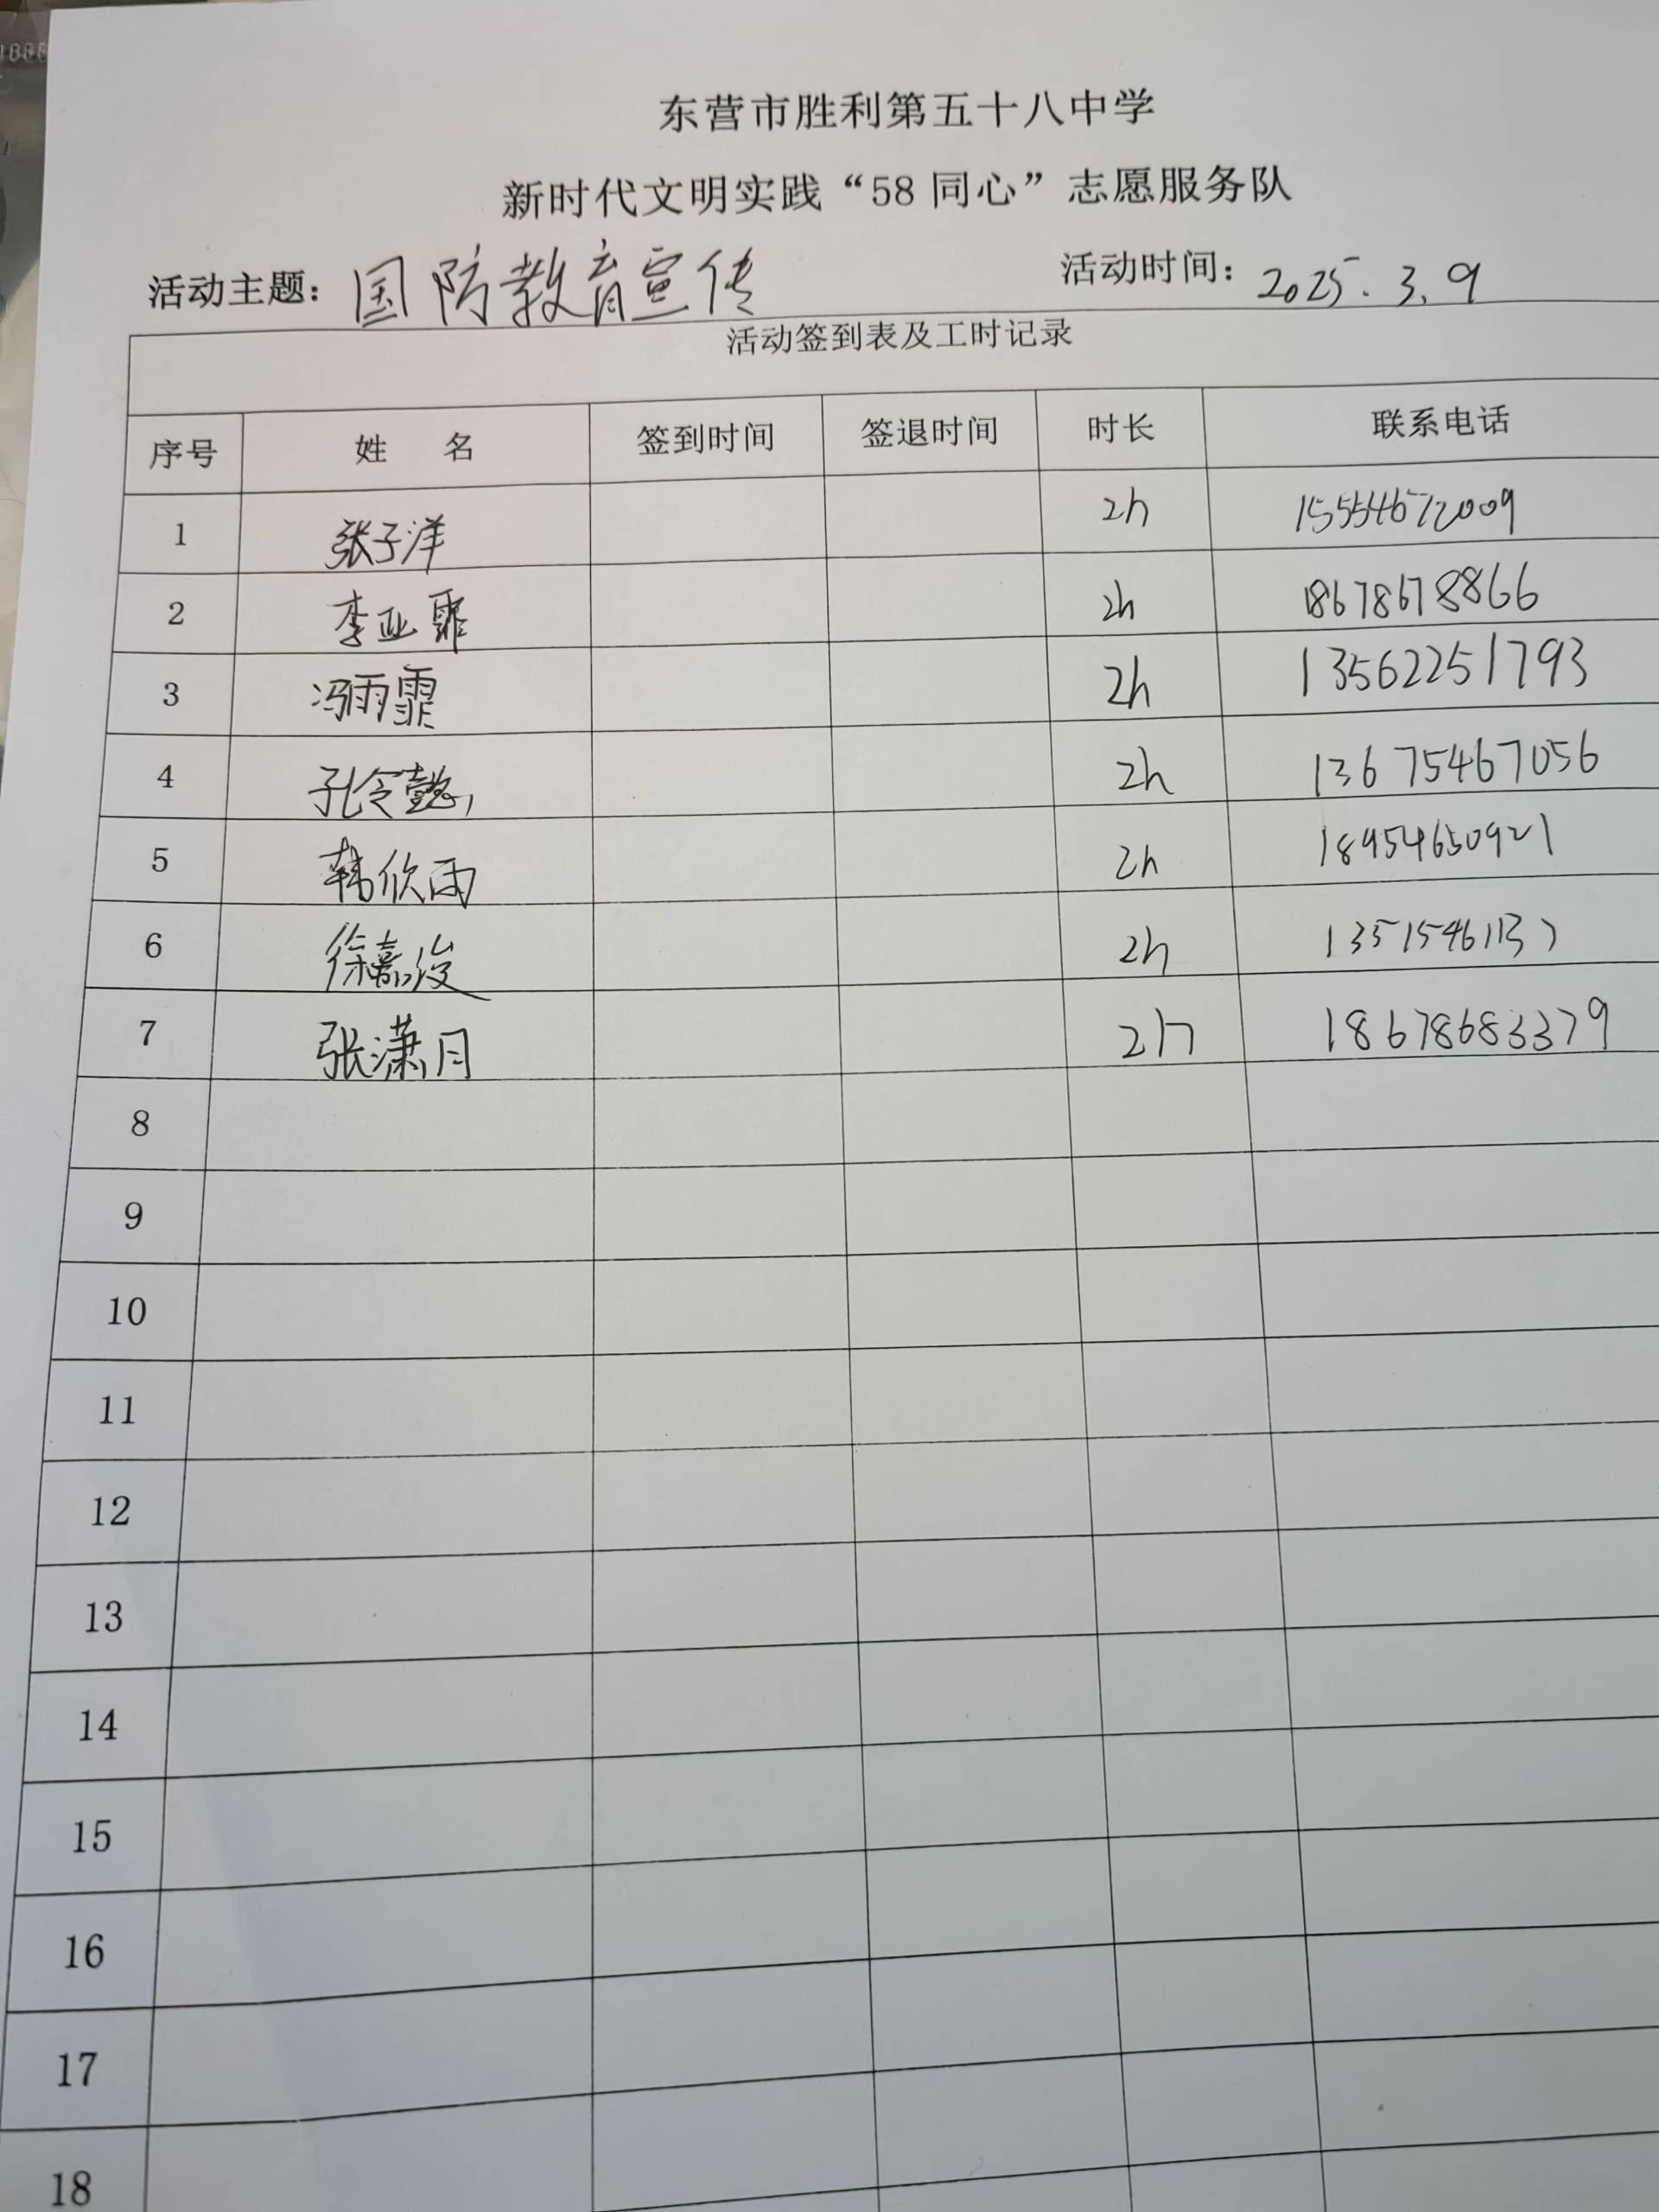 东营市胜利第五十八中学
新时代文明实践“58同心”志愿服务队
活动主题：国防教育宣传 活动时间：2025.3.9
活动签到表及工时记录
序号 姓 名 签到时间 签退时间 时长 联系电话
1 张子洋 2h 15554672009
2 李亚霏 2h 18678678866
3 冯雨霏 2h 13562251793
4 孔令懿 2h 13675467056
5 韩欣雨 2h 18954650921
6 徐嘉俊 2h
7 张潇月 2h 18678683379
8
9
10
11
12
13
14
15
16
17
18